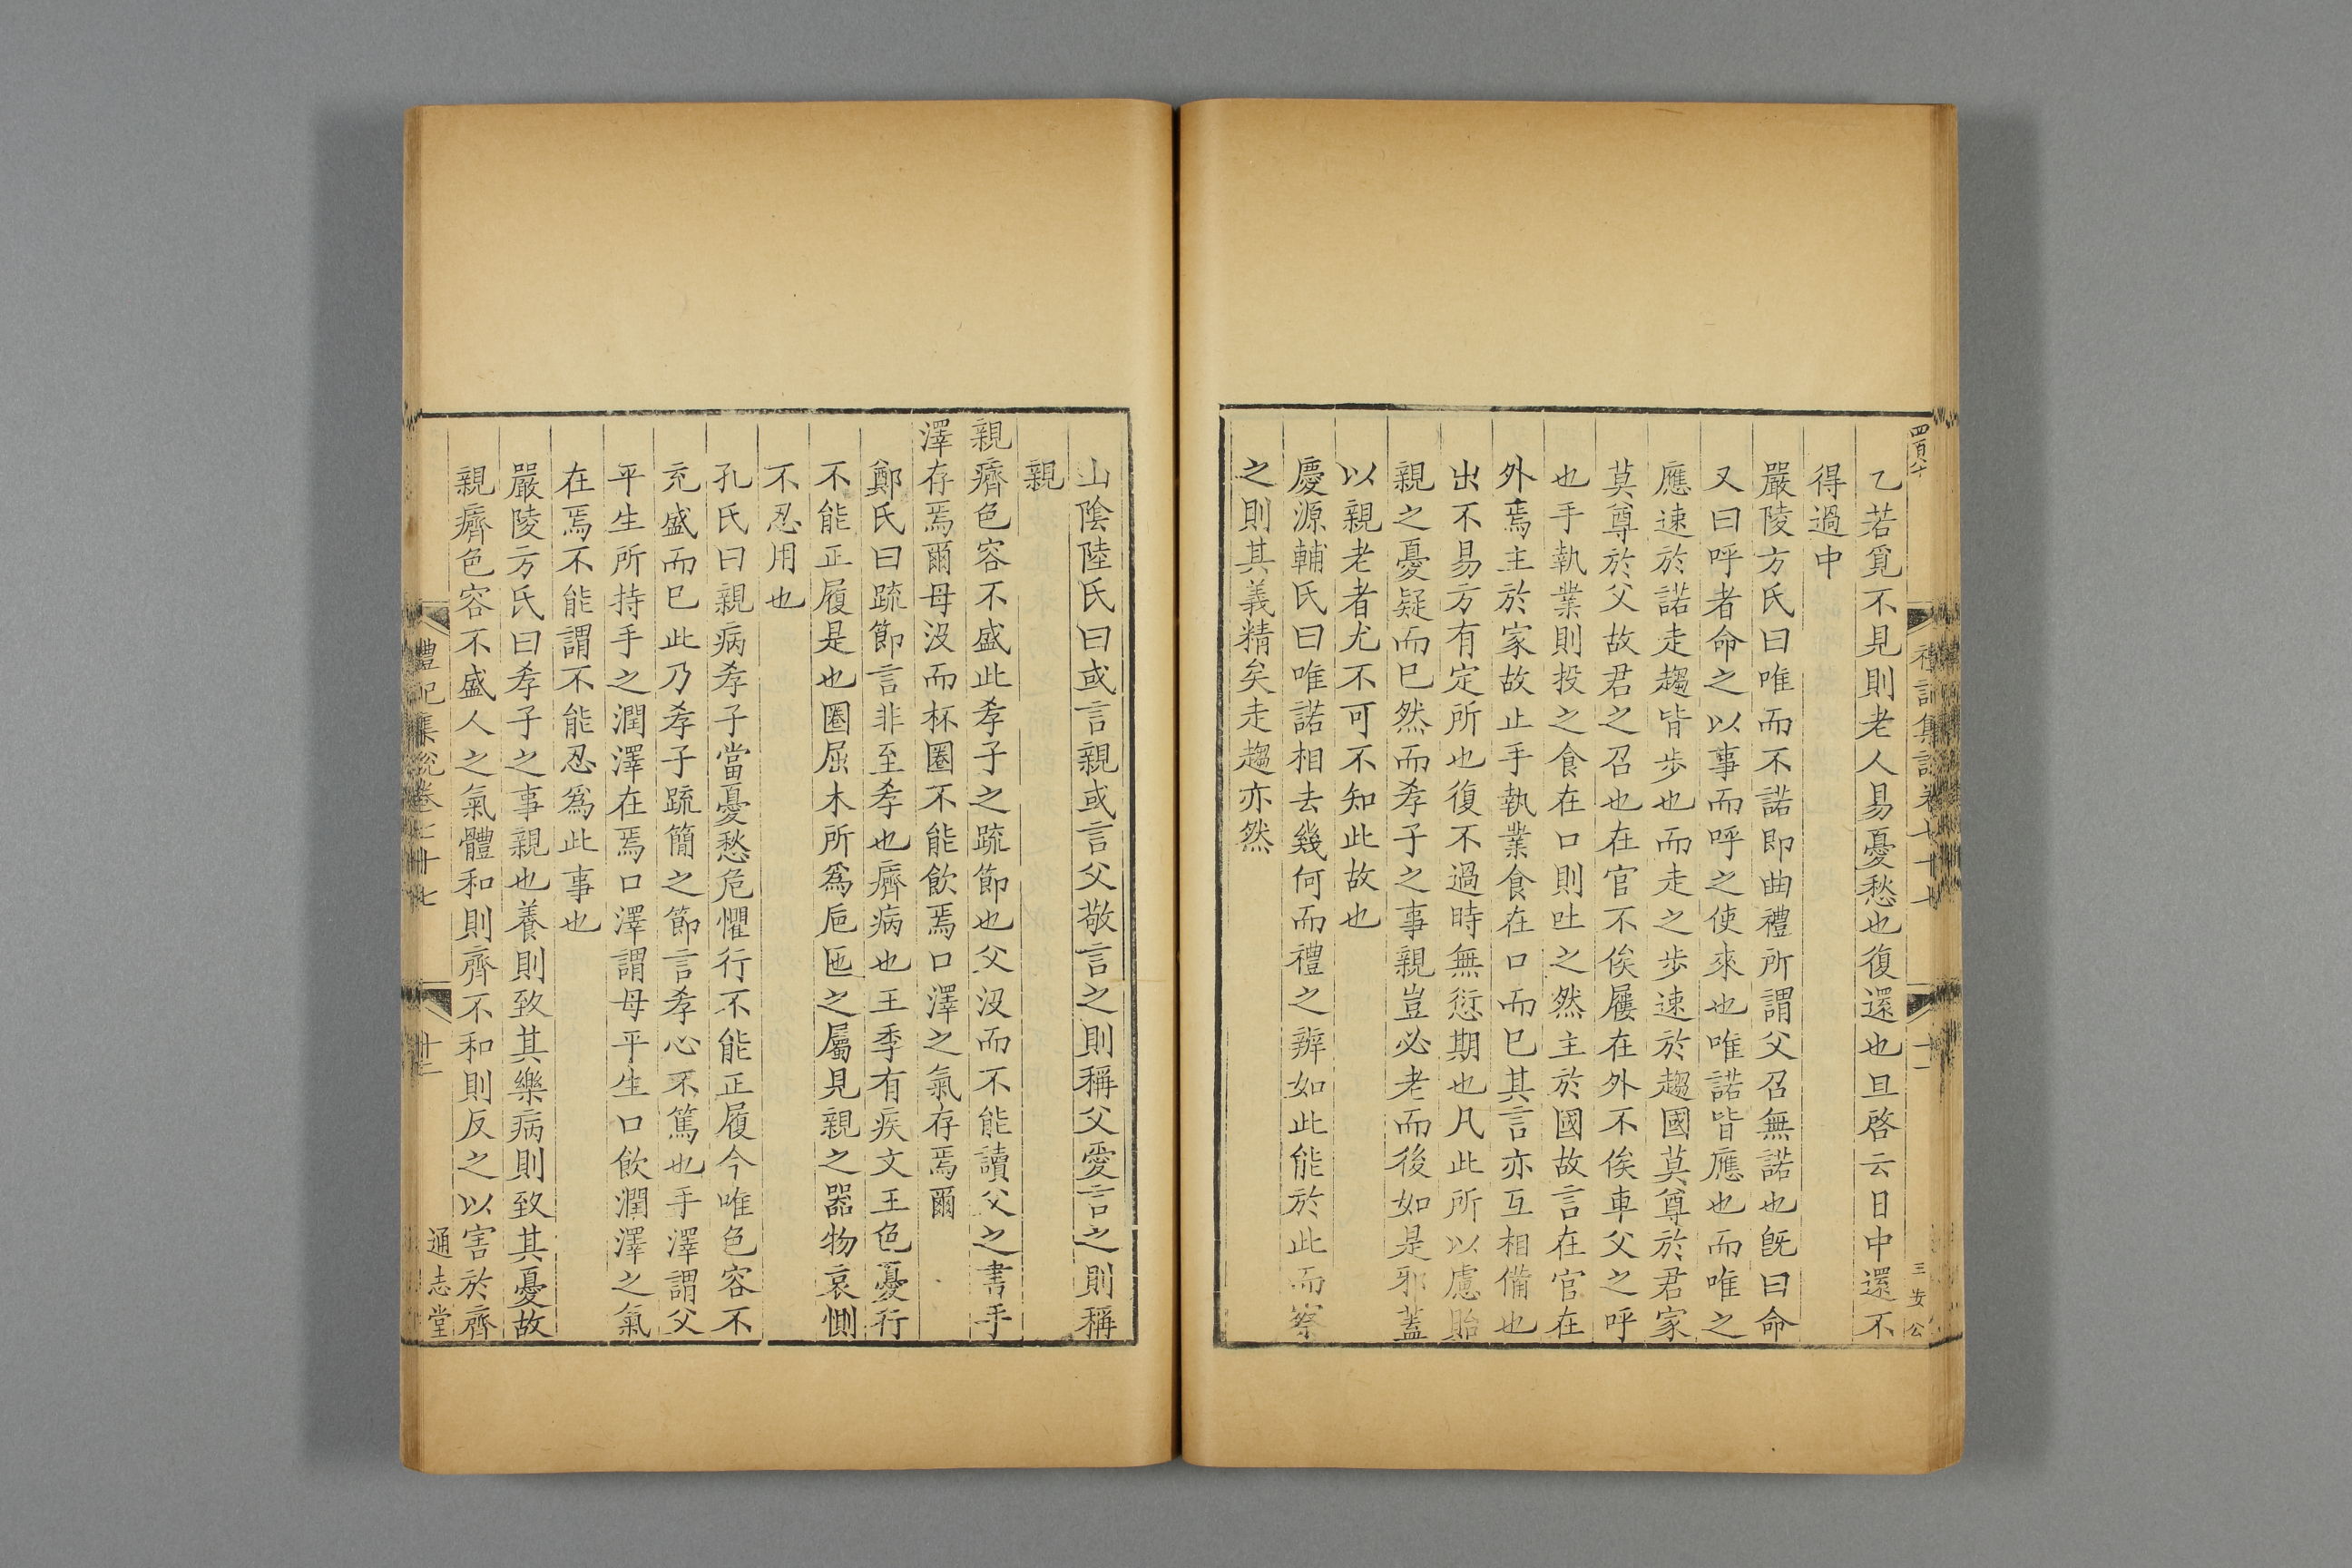 四百六十
禮記集說卷七十七
十一
三安公
乙若覓不見則老人易憂愁也復還也旦啓云日中還不
得過中
嚴陵方氏曰唯而不諾即曲禮所謂父召無諾也旣曰命
又曰呼者命之以事而呼之使來也唯諾皆應也而唯之
應速於諾走趨皆步也而走之步速於趨國莫尊於君家
莫尊於父故君之召也在官不俟屨在外不俟車父之呼
也手執業則投之食在口則吐之然主於國故言在官在
外焉主於家故止手執業食在口而已其言亦互相備也
出不易方有定所也復不過時無愆期也凡此所以慮貽
親之憂疑而已然而孝子之事親豈必老而後如是邪蓋
以親老者尤不可不知此故也
慶源輔氏曰唯諾相去幾何而禮之辨如此能於此而察
之則其義精矣走趨亦然
山陰陸氏曰或言親或言父敬言之則稱父愛言之則稱
親
親癠色容不盛此孝子之疏節也父沒而不能讀父之書手
澤存焉爾母沒而杯圈不能飮焉口澤之氣存焉爾
鄭氏曰疏節言非至孝也癠病也王季有疾文王色憂行
不能正履是也圈屈木所爲巵匜之屬見親之器物哀惻
不忍用也
孔氏曰親病孝子當憂愁危懼行不能正履今唯色容不
充盛而已此乃孝子疏簡之節言孝心不篤也手澤謂父
平生所持手之潤澤在焉口澤謂母平生口飮潤澤之氣
在焉不能謂不能忍爲此事也
嚴陵方氏曰孝子之事親也養則致其樂病則致其憂故
親癠色容不盛人之氣體和則齊不和則反之以害於齊
禮記集說卷七十七
十二
通志堂